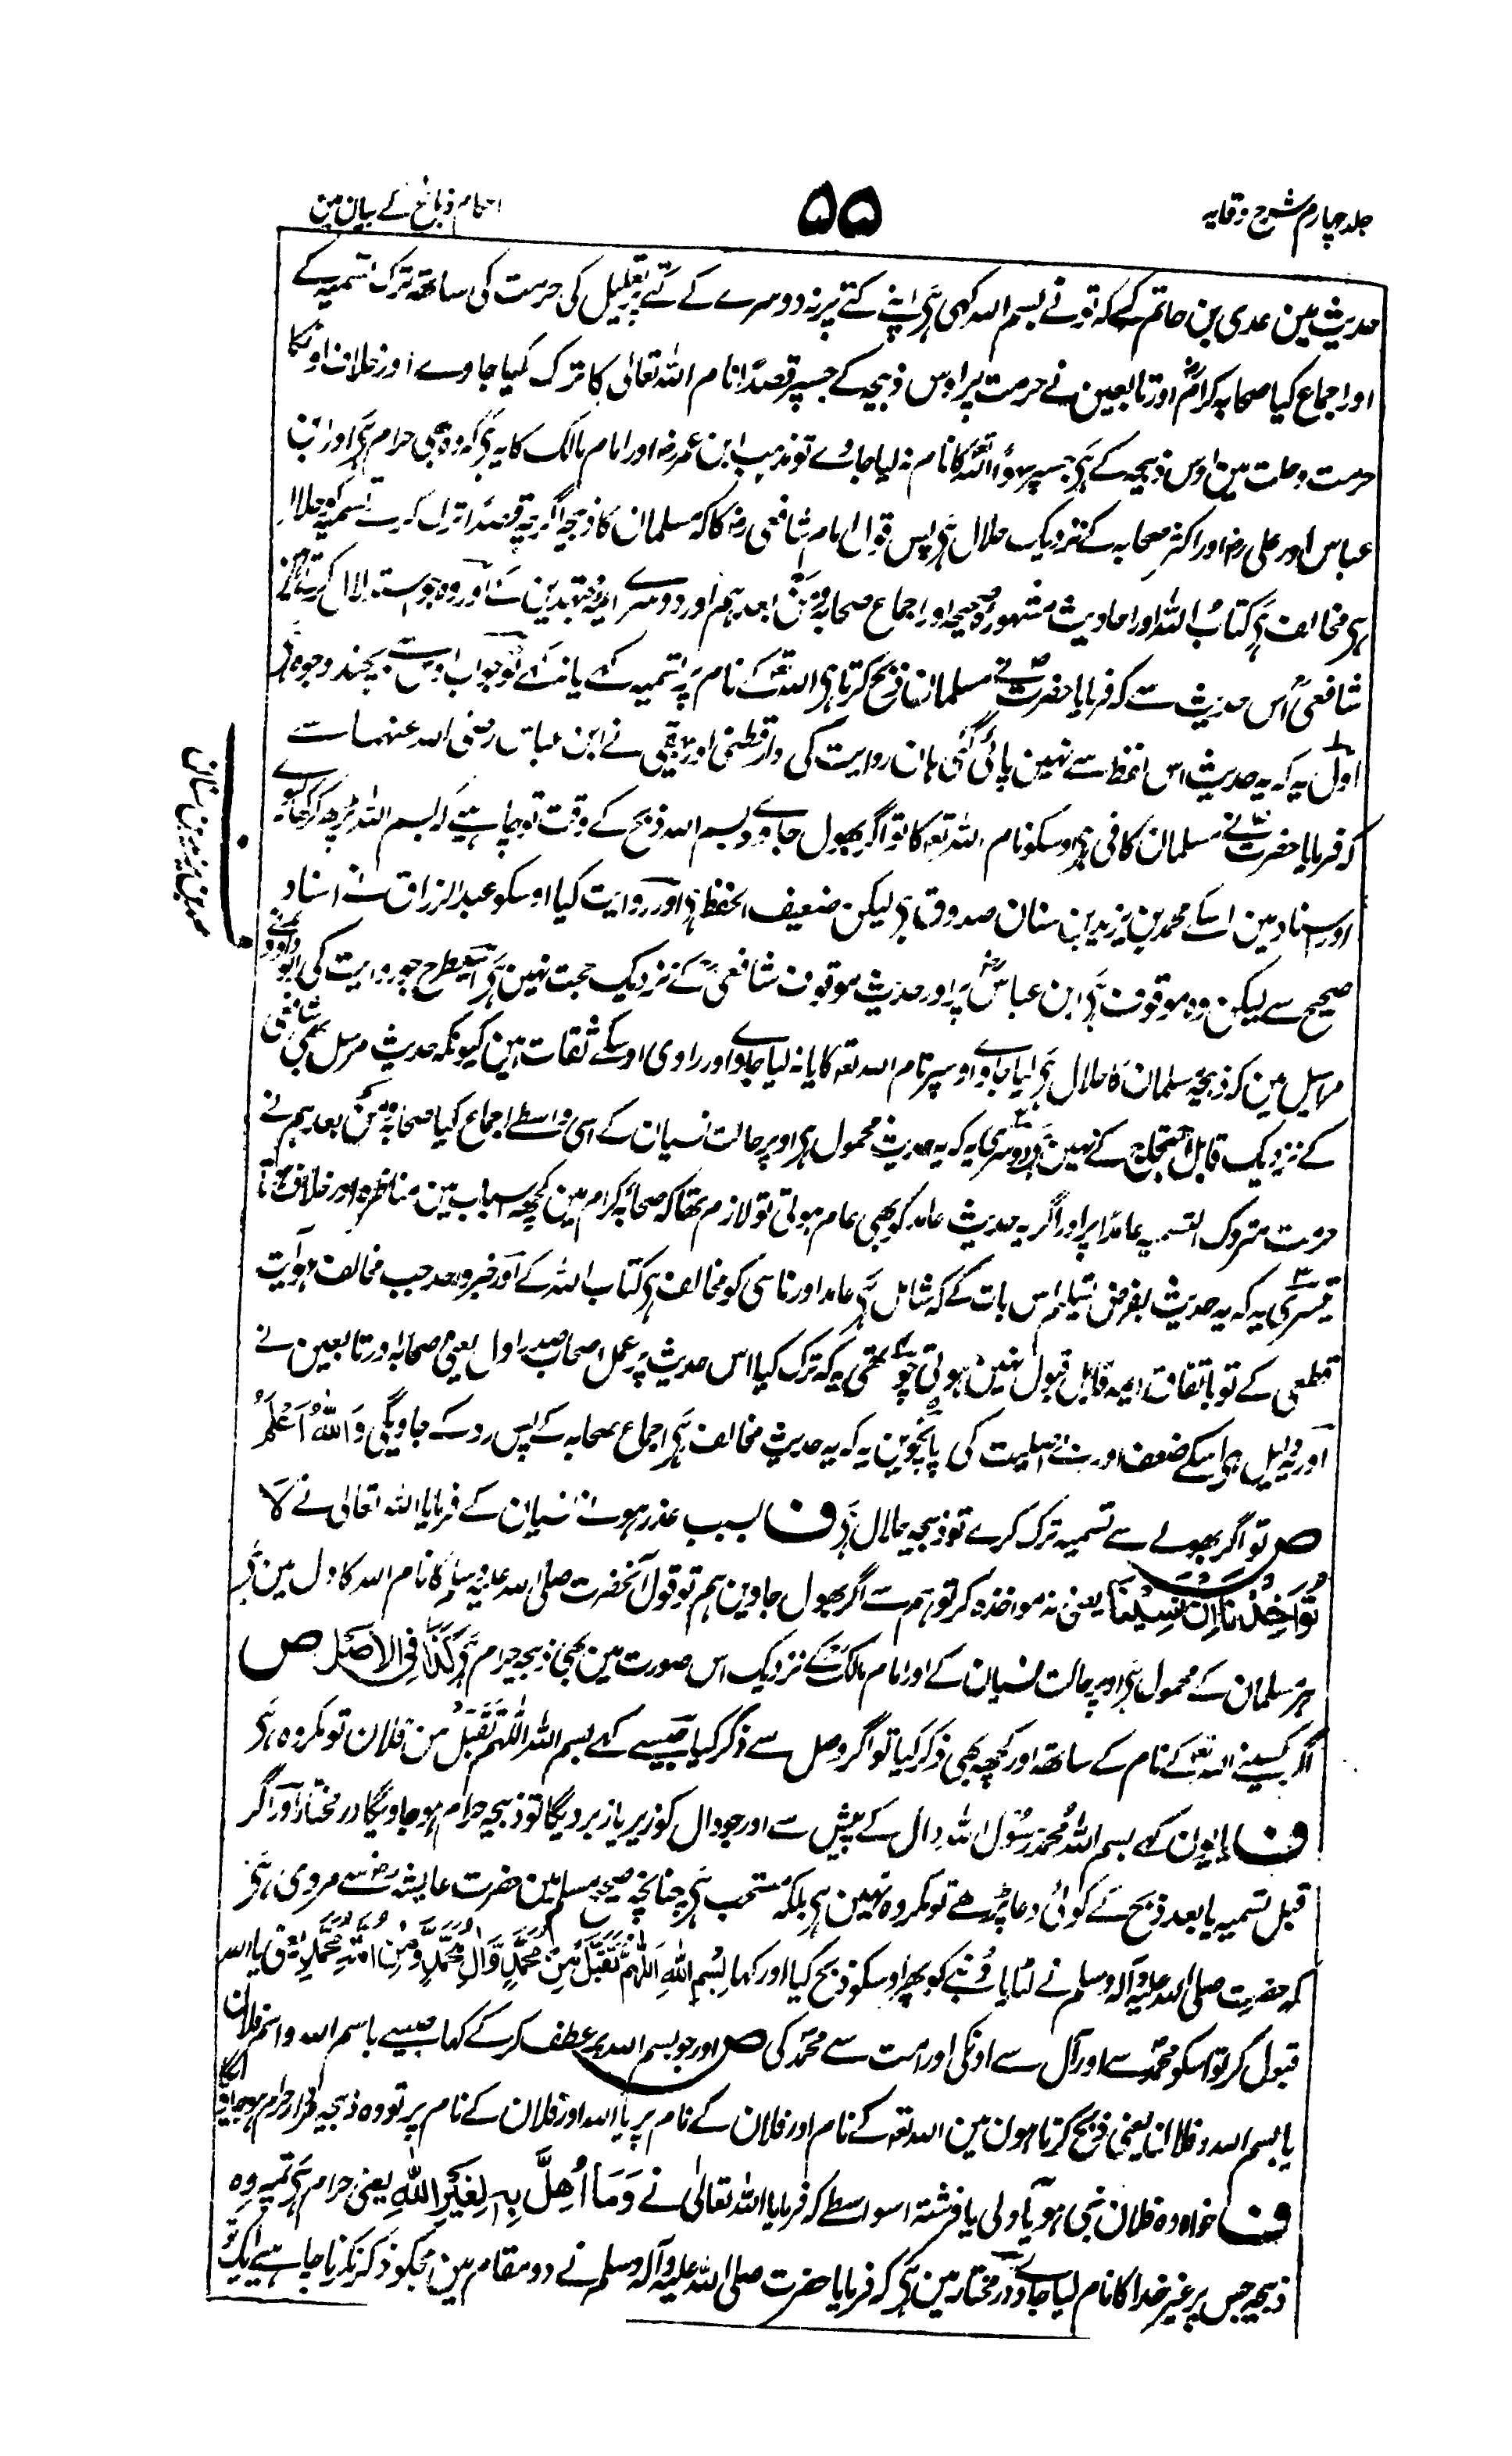 جلد چہارم شرح وقایہ
۵۵
احکام ذبائح کے بیان مین
حدیث مین عدی بن حاتم کے کہ تو نے بسم اللہ کہی ہی اپنے کتے پر نہ دوسرے کے کتے پر تعلیل کی حرمت کی ساتھ ترک تسمیہ کے
اور اجماع کیا صحابہ کرام رض اور تابعین نے حرمت پر اوس ذبیحہ کے جسپر قصدًا نام اللہ تعالی کا ترک کیا جاوے اور خلاف اونکا
حرمت و حلت مین اوس ذبیحہ کے ہی جسپر سہوًا اللہ کا نام نہ لیا جاوے تو مذہب ابن عمر رض اور امام مالک کا یہ ہی کہ وہ بھی حرام ہی اور ابن
عباس اور علی رض اور اکثر صحابہ کے نزدیک حلال ہی پس قول امام شافعی رح کا کہ مسلمان کا ذبیحہ اگرچہ قصدًا ترک کرے تسمیہ کو حلال
ہی مخالف ہی کتاب اللہ اور احادیث مشہورہ صحیحہ اور اجماع صحابہ و من بعدہم اور دوسرے ائمہ مجتہدین سے اور وہ جو استدلال کرتے ہین
شافعی اس حدیث سے کہ فرمایا حضرت نے مسلمان ذبح کرتا ہی اللہ تعہ کے نام پر تسمیہ کہے یا نہ کہے تو جواب اوس سے بچند وجوہ ہی
اول یہ کہ یہ حدیث اس لفظ سے نہین پائی گئی ہان روایت کی دارقطنی اور بیہقی نے ابن عباس رضی اللہ عنہما سے
کہ فرمایا حضرت نے مسلمان کافی ہی اوسکو نام اللہ تعہ کا تو اگر بھول جاوے بسم اللہ ذبح کے وقت تو چاہیے کہ بسم اللہ پڑھ کر کھا لیوے
اور اسناد مین اسکے محمد بن یزید بن سنان صدوق ہی لیکن ضعیف الحفظ ہی اور روایت کیا اوسکو عبد الرزاق نے اسناد
محمد بن یزید بن سنان
صحیح سے لیکن وہ موقوف ہی ابن عباس رض پر اور حدیث موقوف شافعی کے نزدیک حجت نہین ہی اسیطرح جو روایت کی ابو داود نے
مراسیل مین کہ ذبیحہ مسلمان کا حلال ہی لیا جاوے اوسپر نام اللہ تعہ کا یا نہ لیا جاوے اور راوی اوسکے ثقات ہین کیونکہ حدیث مرسل بھی شافعی
کے نزدیک قابل احتجاج کے نہین ہی دوسری یہ کہ یہ حدیث محمول ہی اوپر حالت نسیان کے اسی واسطے اجماع کیا صحابہ و من بعدہم نے
حرمت متروک التسمیہ عامدًا پر اور اگر یہ حدیث عامد کو بھی عام ہوتی تو لازم تھا کہ صحابہ کرام مین کچھ اس باب مین مناظرہ اور خلاف ہوتا
تیسری یہ کہ یہ حدیث بفرض تسلیم اس بات کے کہ شامل ہی عامد اور ناسی کو مخالف ہی کتاب اللہ کے اور خبر واحد جب مخالف ہو آیت
قطعی کے تو باتفاق ائمہ قابل قبول نہین ہوتی چوتھی یہ کہ ترک کیا اس حدیث پر عمل اصحاب صدر اول یعنی صحابہ اور تابعین نے
اور یہ دلیل ہی اسکے ضعف اور بے اصلیت کی پانچوین یہ کہ یہ حدیث مخالف ہی اجماع صحابہ کے پس رد کے جاویگی وَاللّٰہُ اَعْلَمُ
ص تو اگر بھولے سے تسمیہ ترک کرے تو ذبیحہ حلال ہی ف بسبب عذر ہونے نسیان کے فرمایا اللہ تعالی نے لَا
تُؤَاخِذْنَا اِنْ نَّسِیْنَا یعنی نہ مواخذہ کر تو ہم سے اگر بھول جاوین ہم تو قول آنحضرت صلی اللہ علیہ وسلم کا نام اللہ کا دل مین ہی
ہر مسلمان کے محمول ہی اوپر حالت نسیان کے اور امام مالک رح کے نزدیک اس صورت مین بھی ذبیحہ حرام ہی کَذَا فِی الْاَصْلِ ص
اگر کسینے اللہ تعہ کے نام کے ساتھ اور کچھ بھی ذکر کیا تو اگر وصل سے ذکر کیا جیسے کہے بسم اللہ اَللّٰہُمَّ تَقَبَّلْ من فلان تو مکروہ ہی
ف یا یون کہے بسم اللہ مُحمدٌ رسُوْل اللہ دال کے پیش سے اور جو دال کو زیر یا زبر دیگا تو ذبیحہ حرام ہو جاویگا در مختار اور اگر
قبل تسمیہ یا بعد ذبح کے کوئی دعا پڑھے تو مکروہ نہین ہی بلکہ مستحب ہی چنانچہ صحیح مسلم مین حضرت عایشہ رض سے مروی ہی
کہ حضرت صلی اللہ علیہ وآلہ وسلم نے لٹایا دُنبے کو پھر اوسکو ذبح کیا اور کہا بِسْمِ اللّٰہِ اَللّٰہُمَّ تَقَبَّلْ مِنْ مُحَمَّدٍ وَّاٰلِ مُحَمَّدٍ وَّمِنْ اُمَّۃِ مُحَمَّدٍ یعنی یا اللہ
قبول کر تو اسکو محمدؐ سے اور آل سے اونکی اور امت سے محمدؐ کی ص اور جو بسم اللہ پر عطف کر کے کہا جیسے باسم اللہ و اسم فلان
یا بسم اللہ و فلان یعنی ذبح کرتا ہون مین اللہ تعہ کے نام اور فلان کے نام پر یا اللہ اور فلان کے نام پر تو وہ ذبیحہ مردار حرام ہو جاویگا
ف خواہ وہ فلان نبی ہو یا ولی یا فرشتہ اسواسطے کہ فرمایا اللہ تعالی نے وَمَا اُہِلَّ بِہٖ لِغَیْرِ اللّٰہِ یعنی حرام ہی تمپر وہ
ذبیحہ جس پر غیر خدا کا نام لیا جاوے در مختار مین ہی کہ فرمایا حضرت صلی اللہ علیہ وآلہ وسلم نے دو مقام مین مجکو ذکر نکرنا چاہیے ایک تو